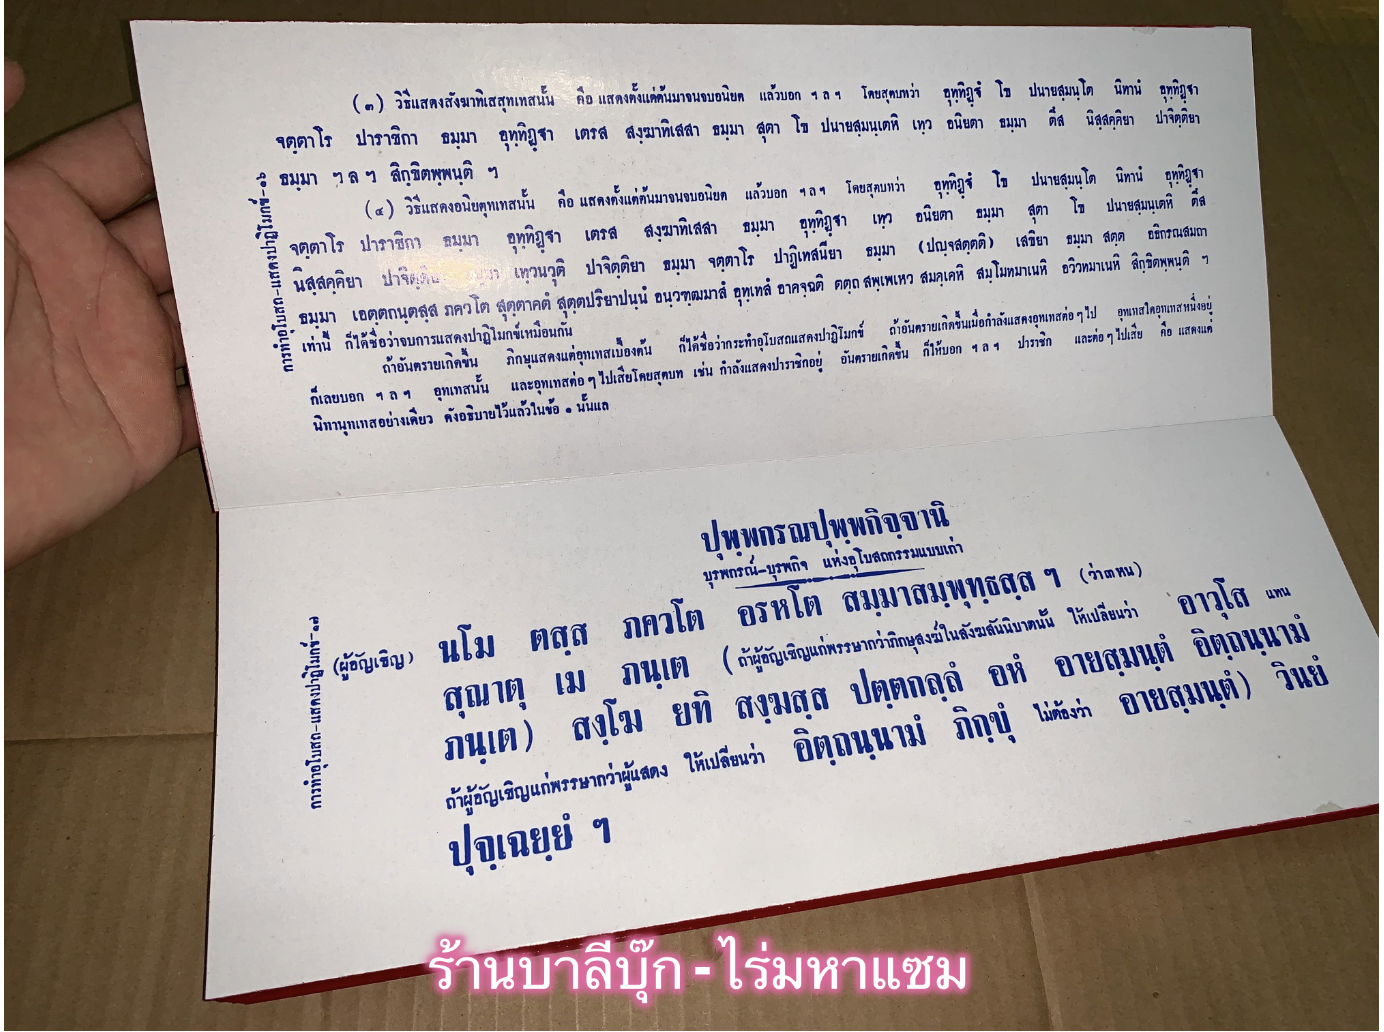 (๓) วิธีแสดงสังฆาทิเสสุทเทสนั้น คือ แสดงตั้งแต่ต้นมาจนจบอนิยต แล้วบอก ฯ ล ฯ โดยสุตบทว่า อุทฺทิฏฺฐํ โข ปนายสฺมนฺโต นิทานํ อุทฺทิฏฺฐา
จตฺตาโร ปาราชิกา ธมฺมา อุทฺทิฏฺฐา เตรส สงฺฆาทิเสสา ธมฺมา สุตา โข ปนายสฺมนฺเตหิ เทฺว อนิยตา ธมฺมา ตึส นิสฺสคฺคิยา ปาจิตฺติยา
ธมฺมา ฯ ล ฯ สิกฺขิตพฺพนฺติ ฯ
(๔) วิธีแสดงอนิยตุทเทสนั้น คือ แสดงตั้งแต่ต้นมาจนจบอนิยต แล้วบอก ฯ ล ฯ โดยสุตบทว่า อุทฺทิฏฺฐํ โข ปนายสฺมนฺโต นิทานํ อุทฺทิฏฺฐา
จตฺตาโร ปาราชิกา ธมฺมา อุทฺทิฏฺฐา เตรส สงฺฆาทิเสสา ธมฺมา อุทฺทิฏฺฐา เทฺว อนิยตา ธมฺมา สุตา โข ปนายสฺมนฺเตหิ ตึส
นิสฺสคฺคิยา ปาจิตฺติยา ธมฺมา เทฺวนวุติ ปาจิตฺติยา ธมฺมา จตฺตาโร ปาฏิเทสนียา ธมฺมา (ปญฺจสตฺตติ) เสขิยา ธมฺมา สตฺต อธิกรณสมถา
ธมฺมา เอตฺตกนฺตสฺส ภควโต สุตฺตาคตํ สุตฺตปริยาปนฺนํ อนฺวฑฺฒมาสํ อุทฺเทสํ อาคจฺฉติ ตตฺถ สพฺเพเหว สมคฺเคหิ สมฺโมทมาเนหิ อวิวทมาเนหิ สิกฺขิตพฺพนฺติ ฯ
เท่านี้ ก็ได้ชื่อว่าจบการแสดงปาฏิโมกข์เหมือนกัน
ถ้าอันตรายเกิดขึ้น ภิกษุแสดงแต่อุทเทสเบื้องต้น ก็ได้ชื่อว่ากระทำอุโบสถแสดงปาฏิโมกข์ ถ้าอันตรายเกิดขึ้นเมื่อกำลังแสดงอุทเทสต่อ ๆ ไป อุทเทสใดอุทเทสหนึ่งอยู่
ก็เลยบอก ฯ ล ฯ อุทเทสนั้น และอุทเทสต่อ ๆ ไปเสียโดยสุตบท เช่น กำลังแสดงปาราชิกอยู่ อันตรายเกิดขึ้น ก็ให้บอก ฯ ล ฯ ปาราชิก และต่อ ๆ ไปเสีย คือ แสดงแต่
นิทานุทเทสอย่างเดียว ดังอธิบายไว้แล้วในข้อ ๑ นั้นแล
การทำอุโบสถ-แสดงปาฏิโมกข์-๑๖
ปุพฺพกรณปุพฺพกิจฺจานิ
บุรพกรณ์-บุรพกิจ แห่งอุโบสถกรรมแบบเก่า
(ผู้อัญเชิญ) นโม ตสฺส ภควโต อรหโต สมฺมาสมฺพุทฺธสฺส ฯ (ว่า๓หน)
สุณาตุ เม ภนฺเต (ถ้าผู้อัญเชิญแก่พรรษากว่าภิกษุสงฆ์ในสังฆสันนิบาตนั้น ให้เปลี่ยนว่า อาวุโส แทน
ภนฺเต) สงฺโฆ ยทิ สงฺฆสฺส ปตฺตกลฺลํ อหํ อายสฺมนฺตํ อิตฺถนฺนามํ
ถ้าผู้อัญเชิญแก่พรรษากว่าผู้แสดง ให้เปลี่ยนว่า อิตฺถนฺนามํ ภิกฺขุํ ไม่ต้องว่า อายสฺมนฺตํ) วินยํ
ปุจฺเฉยฺยํ ฯ
การทำอุโบสถ-แสดงปาฏิโมกข์-๑๗
ร้านบาลีบุ๊ก - ไร่มหาแซม